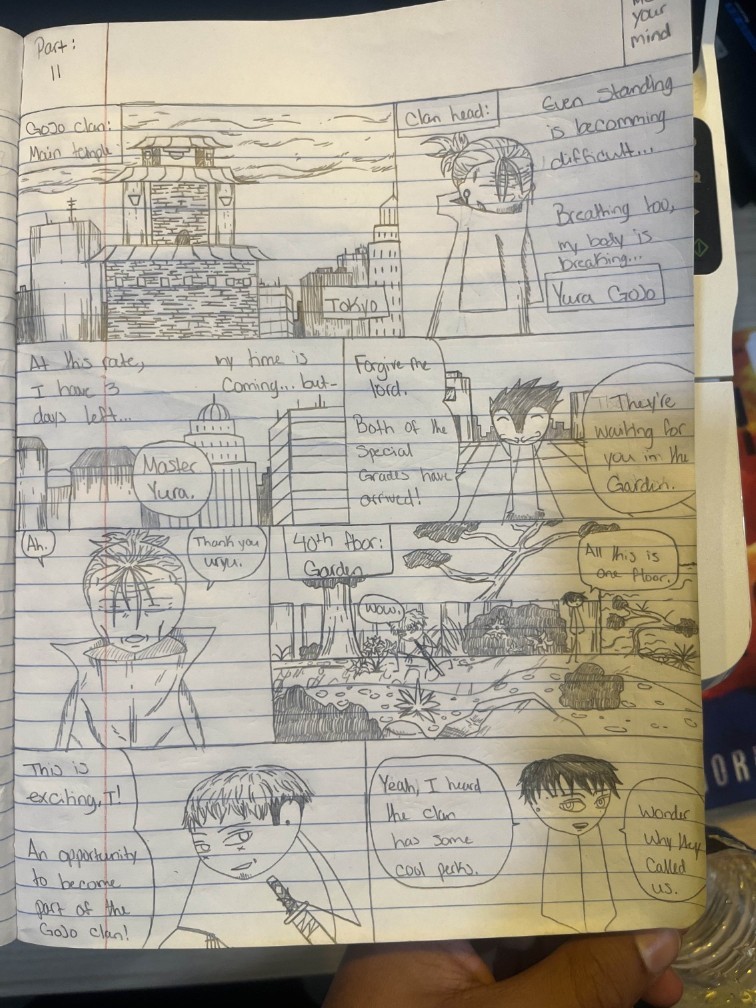 Part:
11
your
mind
GoJo clan:
Main temple:
Tokyo
Clan head:
Even standing
is becomming
difficult...
Breathing too,
my body is
breaking...
Yura GoJo
At this rate,
I have 3
days left...
my time is
Coming... but-
Master
Yura.
Forgive me
lord.
Both of the
Special
Grades have
arrived!
They're
waiting for
you in the
Garden.
Ah.
Thank you
uryu.
40th floor:
Garden
Wow.
All this is
one floor.
This is
exciting, T!
An opportunity
to become
part of the
GoJo clan!
Yeah, I heard
the clan
has some
cool perks.
Wonder
why they
Called
us.